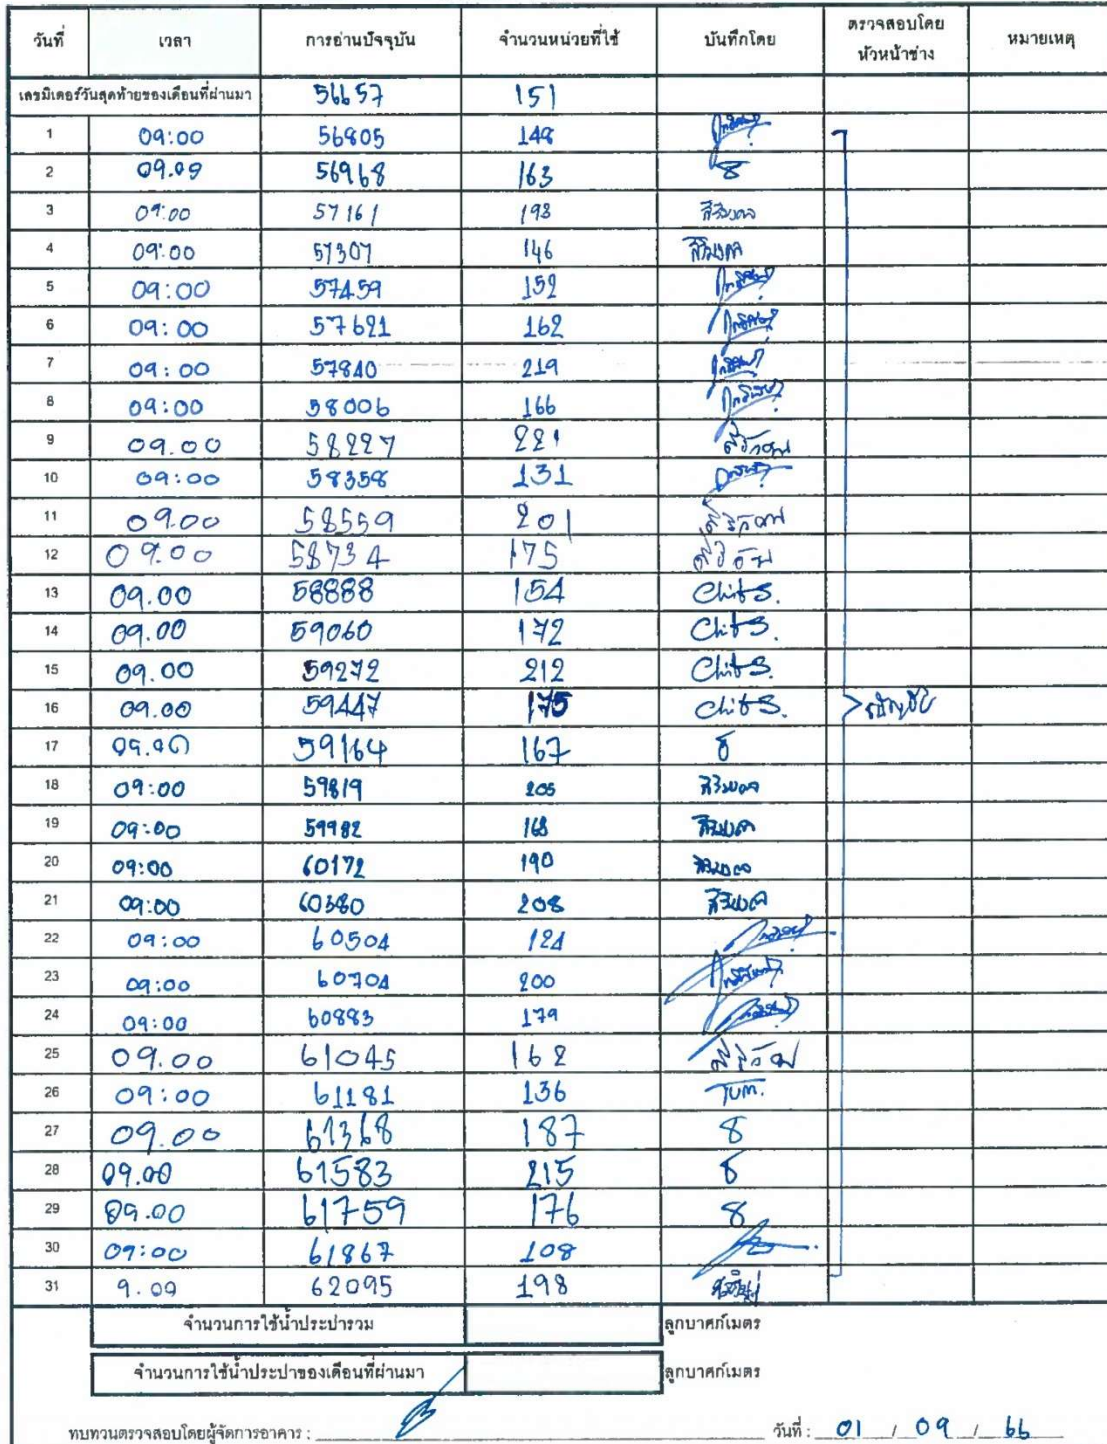 วันที่ เวลา การอ่านปัจจุบัน จำนวนหน่วยที่ใช้ บันทึกโดย ตรวจสอบโดย หัวหน้าช่าง หมายเหตุ
เลขมิเตอร์วันสุดท้ายของเดือนที่ผ่านมา 56657 151
1 09:00 56805 148
2 09.09 56968 163 8
3 09:00 57161 193 สิริมงคล
4 09:00 57307 146 สิริมงคล
5 09:00 57459 152
6 09:00 57621 162
7 09:00 57840 219
8 09:00 58006 166
9 09.00 58227 221
10 09:00 58358 131
11 09.00 58559 201
12 09.00 58734 175
13 09.00 58888 154 Chit S.
14 09.00 59060 172 Chit S.
15 09.00 59272 212 Chit S.
16 09.00 59447 175 Chit S.
17 09.00 59164 167 8
18 09:00 59819 205 สิริมงคล
19 09:00 59982 163 สิริมงคล
20 09:00 60172 190 สิริมงคล
21 09:00 60380 208 สิริมงคล
22 09:00 60504 124
23 09:00 60704 200
24 09:00 60883 179
25 09.00 61045 162
26 09:00 61181 136 TUM.
27 09.00 61368 187 8
28 09.00 61583 215 8
29 09.00 61759 176 8
30 09:00 61867 108
31 9.00 62095 198
จำนวนการใช้น้ำประปารวม ลูกบาศก์เมตร
จำนวนการใช้น้ำประปาของเดือนที่ผ่านมา ลูกบาศก์เมตร
ทบทวนตรวจสอบโดยผู้จัดการอาคาร : วันที่ : 01 / 09 / 66